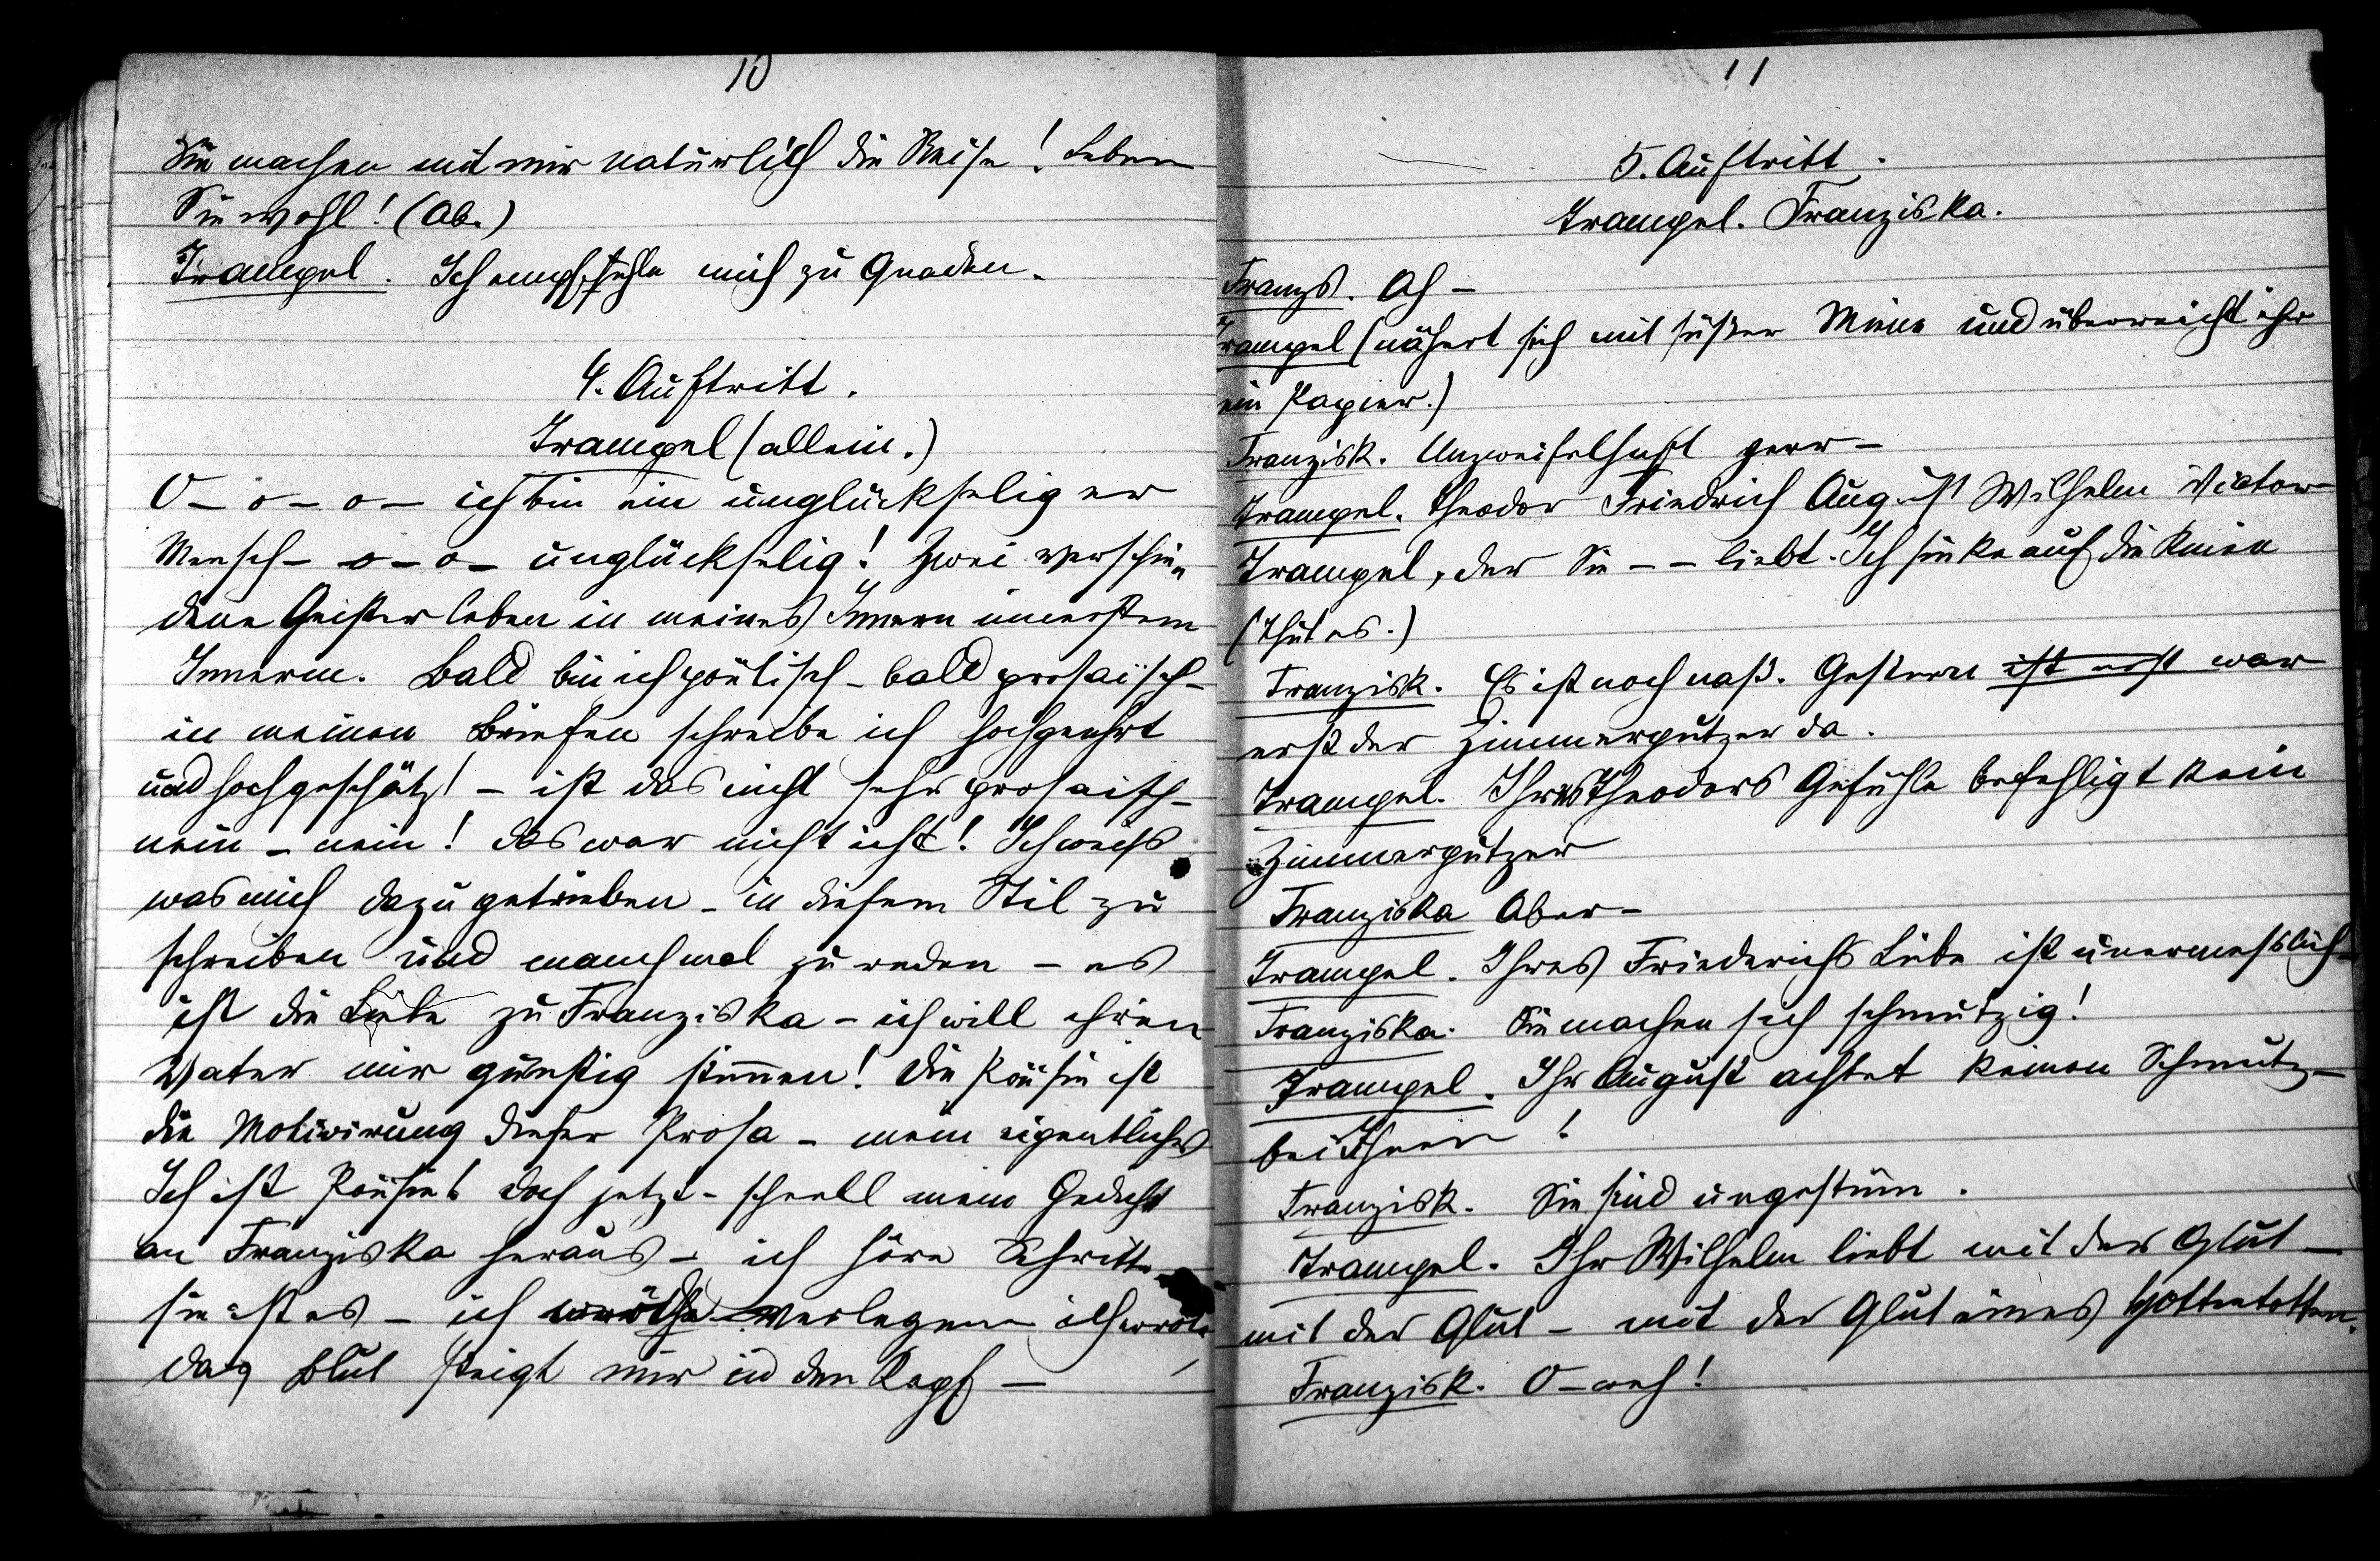 10
Sie machen mit mir natürlich die Reise! Leben
Sie wohl! (Ab.)
Trampel. Ich empfehle mich zu Gnaden.
4. Auftritt.
Trampel (allein.)
O – o – o – ich bin ein unglückseliger
Mensch – o – o – unglückselig! Zwei verschie„
dene Geister leben in meines Innern innerstem
Innerm. Bald bin ich poëtisch – bald prosaïsch –
in meinen Briefen schreibe ich hochgeehrt
und hochgeschätzt – ist das nicht sehr prosaisch –
nein – nein! das war nicht ich! Ich weiß
was mich dazu getrieben – in diesem Stil zu
schreiben und manchmal zu reden – es
ist die Liebe zu Franziska – ich will ihren
Vater mir günstig stimmen! Die Poësie ist
die Motivirung dieser Prosa – mein eigentliches
Ich ist Poësie! doch jetzt – schnell mein Gedicht
an Franziska heraus – ich höre Schritte
sie ist es – ich verlegen ich
das Blut steigt mir in den Kopf –
11
5. Auftritt.
Trampel. Franziska.
Franzs. Ah –
Trampel (nähert sich mit süßer Miene und überreicht ihr
ein Papier.)
Franzisk. Unzweifelhaft
Trampel. Theodor Friedrich August Wilhelm Victor
Trampel, der Sie – – liebt. Ich sinke auf die Kniee
(Thut es.)
Franzisk. Es ist noch naß. Gestern ist erst war
erst der Zimmerputzer da.
Trampel. Ihres Theodors Gefühle befehligt kein
Zimmerputzer
Franziska Aber –
Trampel. Ihres Friederichs Liebe ist unermesslich –
Franziska. Sie machen sich schmutzig!
Trampel. Ihr August achtet keinen Schmutz –
bei Ihnen!
Franzisk. Sie sind ungestüm.
Trampel. Ihr Wilhelm liebt mit der Glut –
mit der Glut – mit der Glut eines Hottentotten.
Franzisk. O – weh!